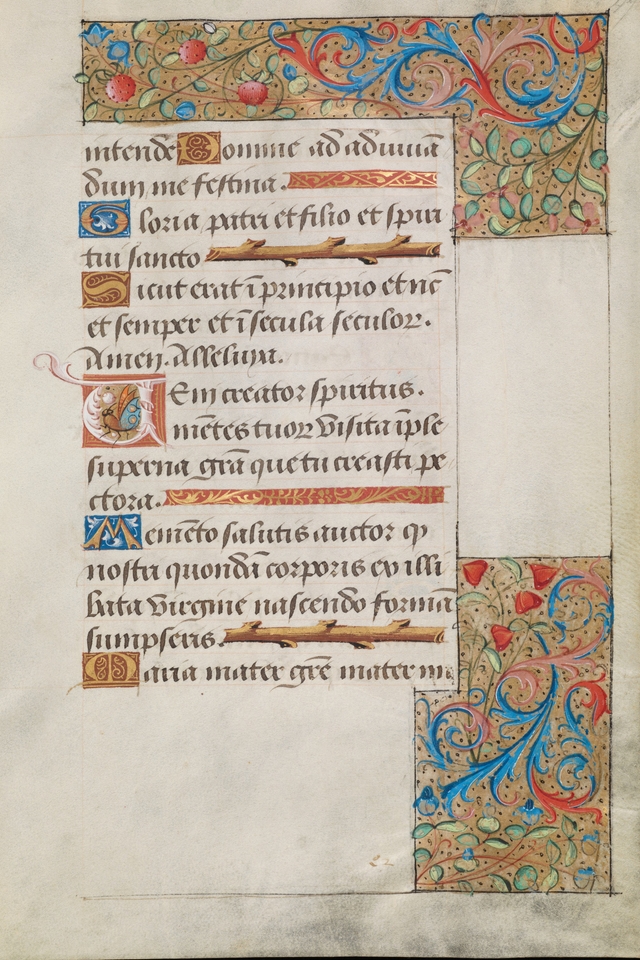 intende Domine ad adiuuā
dum me festina.
Gloria patri et filio et spiri
tui sancto
Sicut erat ī principio et nūc
et semper et ī secula seculoꝝ.
Amen. Alleluya.
Ueni creator spiritus.
mētes tuoꝝ visita īple
superna grā que tu creasti pe
ctora.
Memēto salutis auctor ꝙ
nostri quondā corporis ex illi
bata virgine nascendo formā
sumpseris.
Maria mater grē mater mi
22